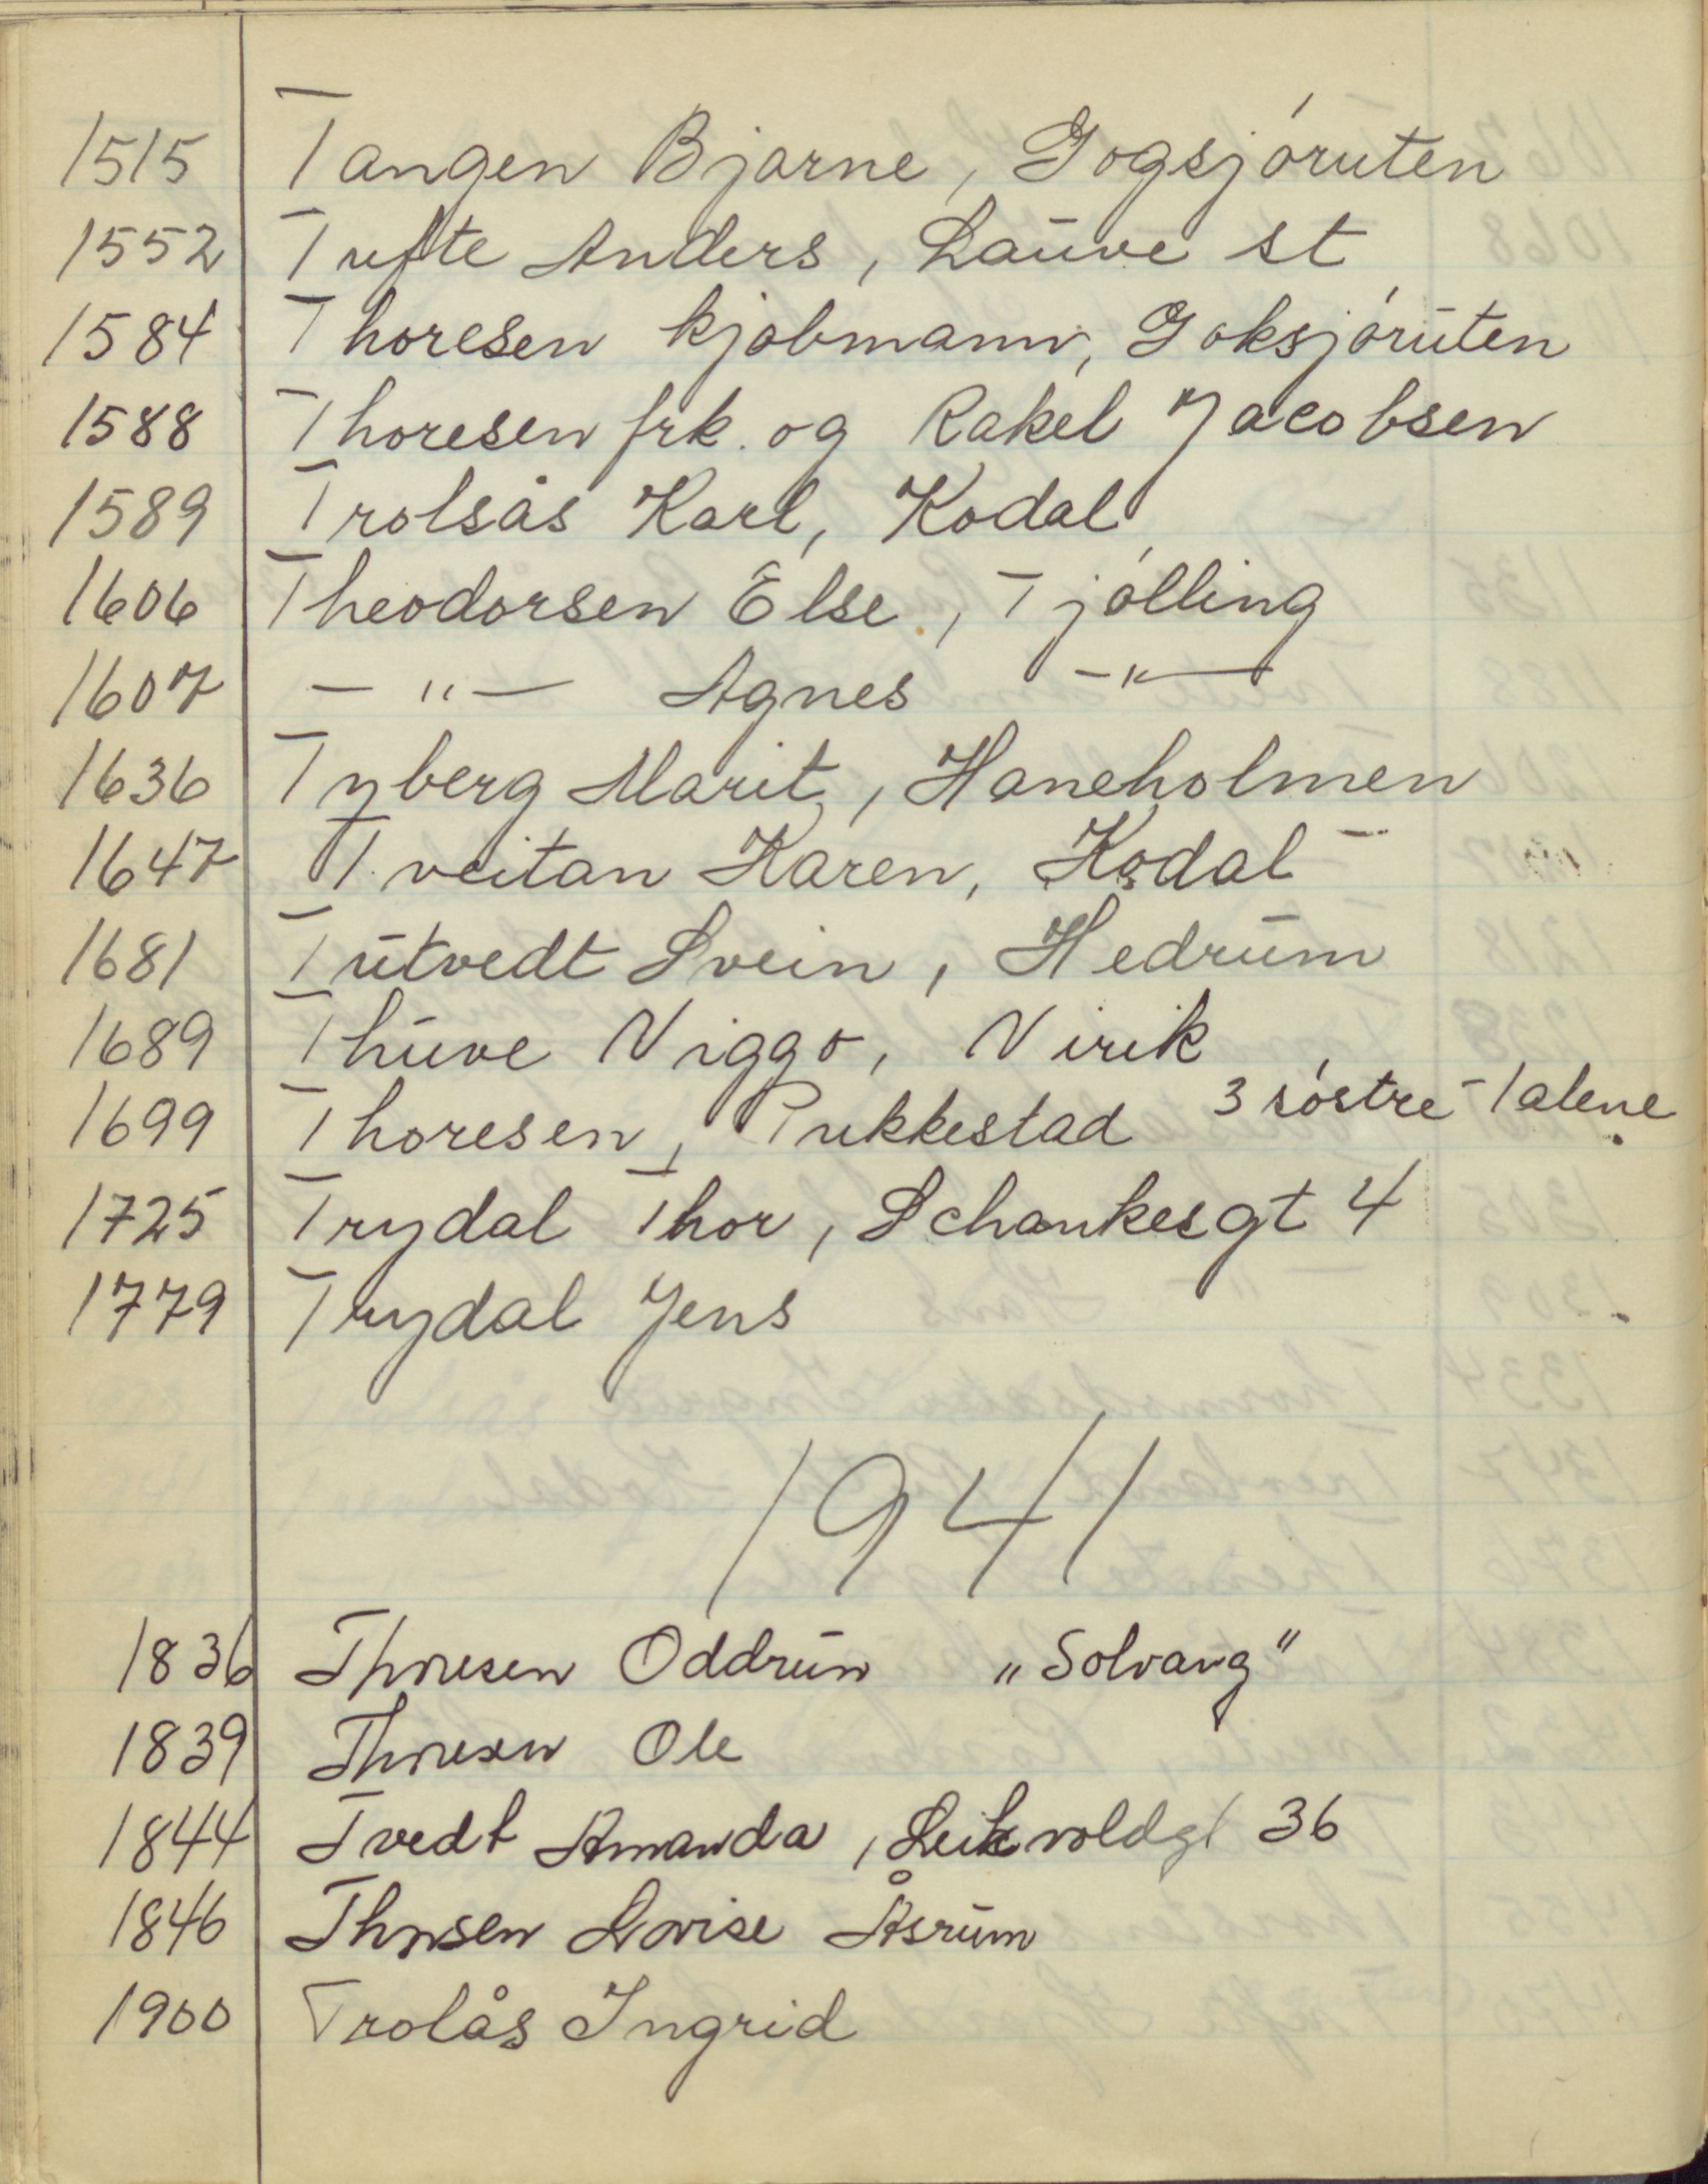 1515 Tangen Bjarne, Gogsjóruten
1552 Tufte Anders, Lauve st
1584 Thoresen kjøbmann, Goksjóruten
1588 Thoresen frk. og Rakel Jacobsen
1589 Trolsås Karl, Kodal
1606 Theodorsen Else, Tjólling
1607 — " — Agnes — " —
1636 Tyberg Marit, Haneholmen
1647 Tveitan Karen, Kodal
1681 Tutvedt Svein, Hedrum
1689 Thuve Viggo, Virik
1699 Thoresen, Pukkestad 3 søstre - 1 alene
1725 Trydal Thor, Schankesgt 4
1779 Trydal Jens
1941
1836 Thoresen Oddrun „Solvang"
1839 Thoresen Ole
1844 Tvedt Amanda, Leikvoldgt 36
1846 Thorsen Lovise Åsrum
1900 Trolås Ingrid